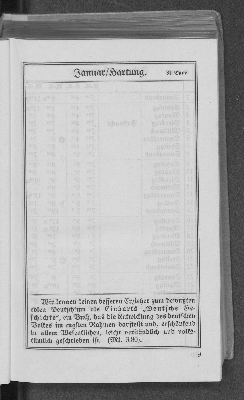 Januar/Hartung. 31 Tage
Wir kennen keinen besseren Erzieher zum bewußten
edlen Deutschtum als Einharts „Deutsche Ge-
schichte“, ein Buch, das die Entwicklung des deutschen
Volkes in engstem Rahmen darstellt und, erschöpfend
in allem Wesentlichen, leicht verständlich und volks-
tümlich geschrieben ist.
9